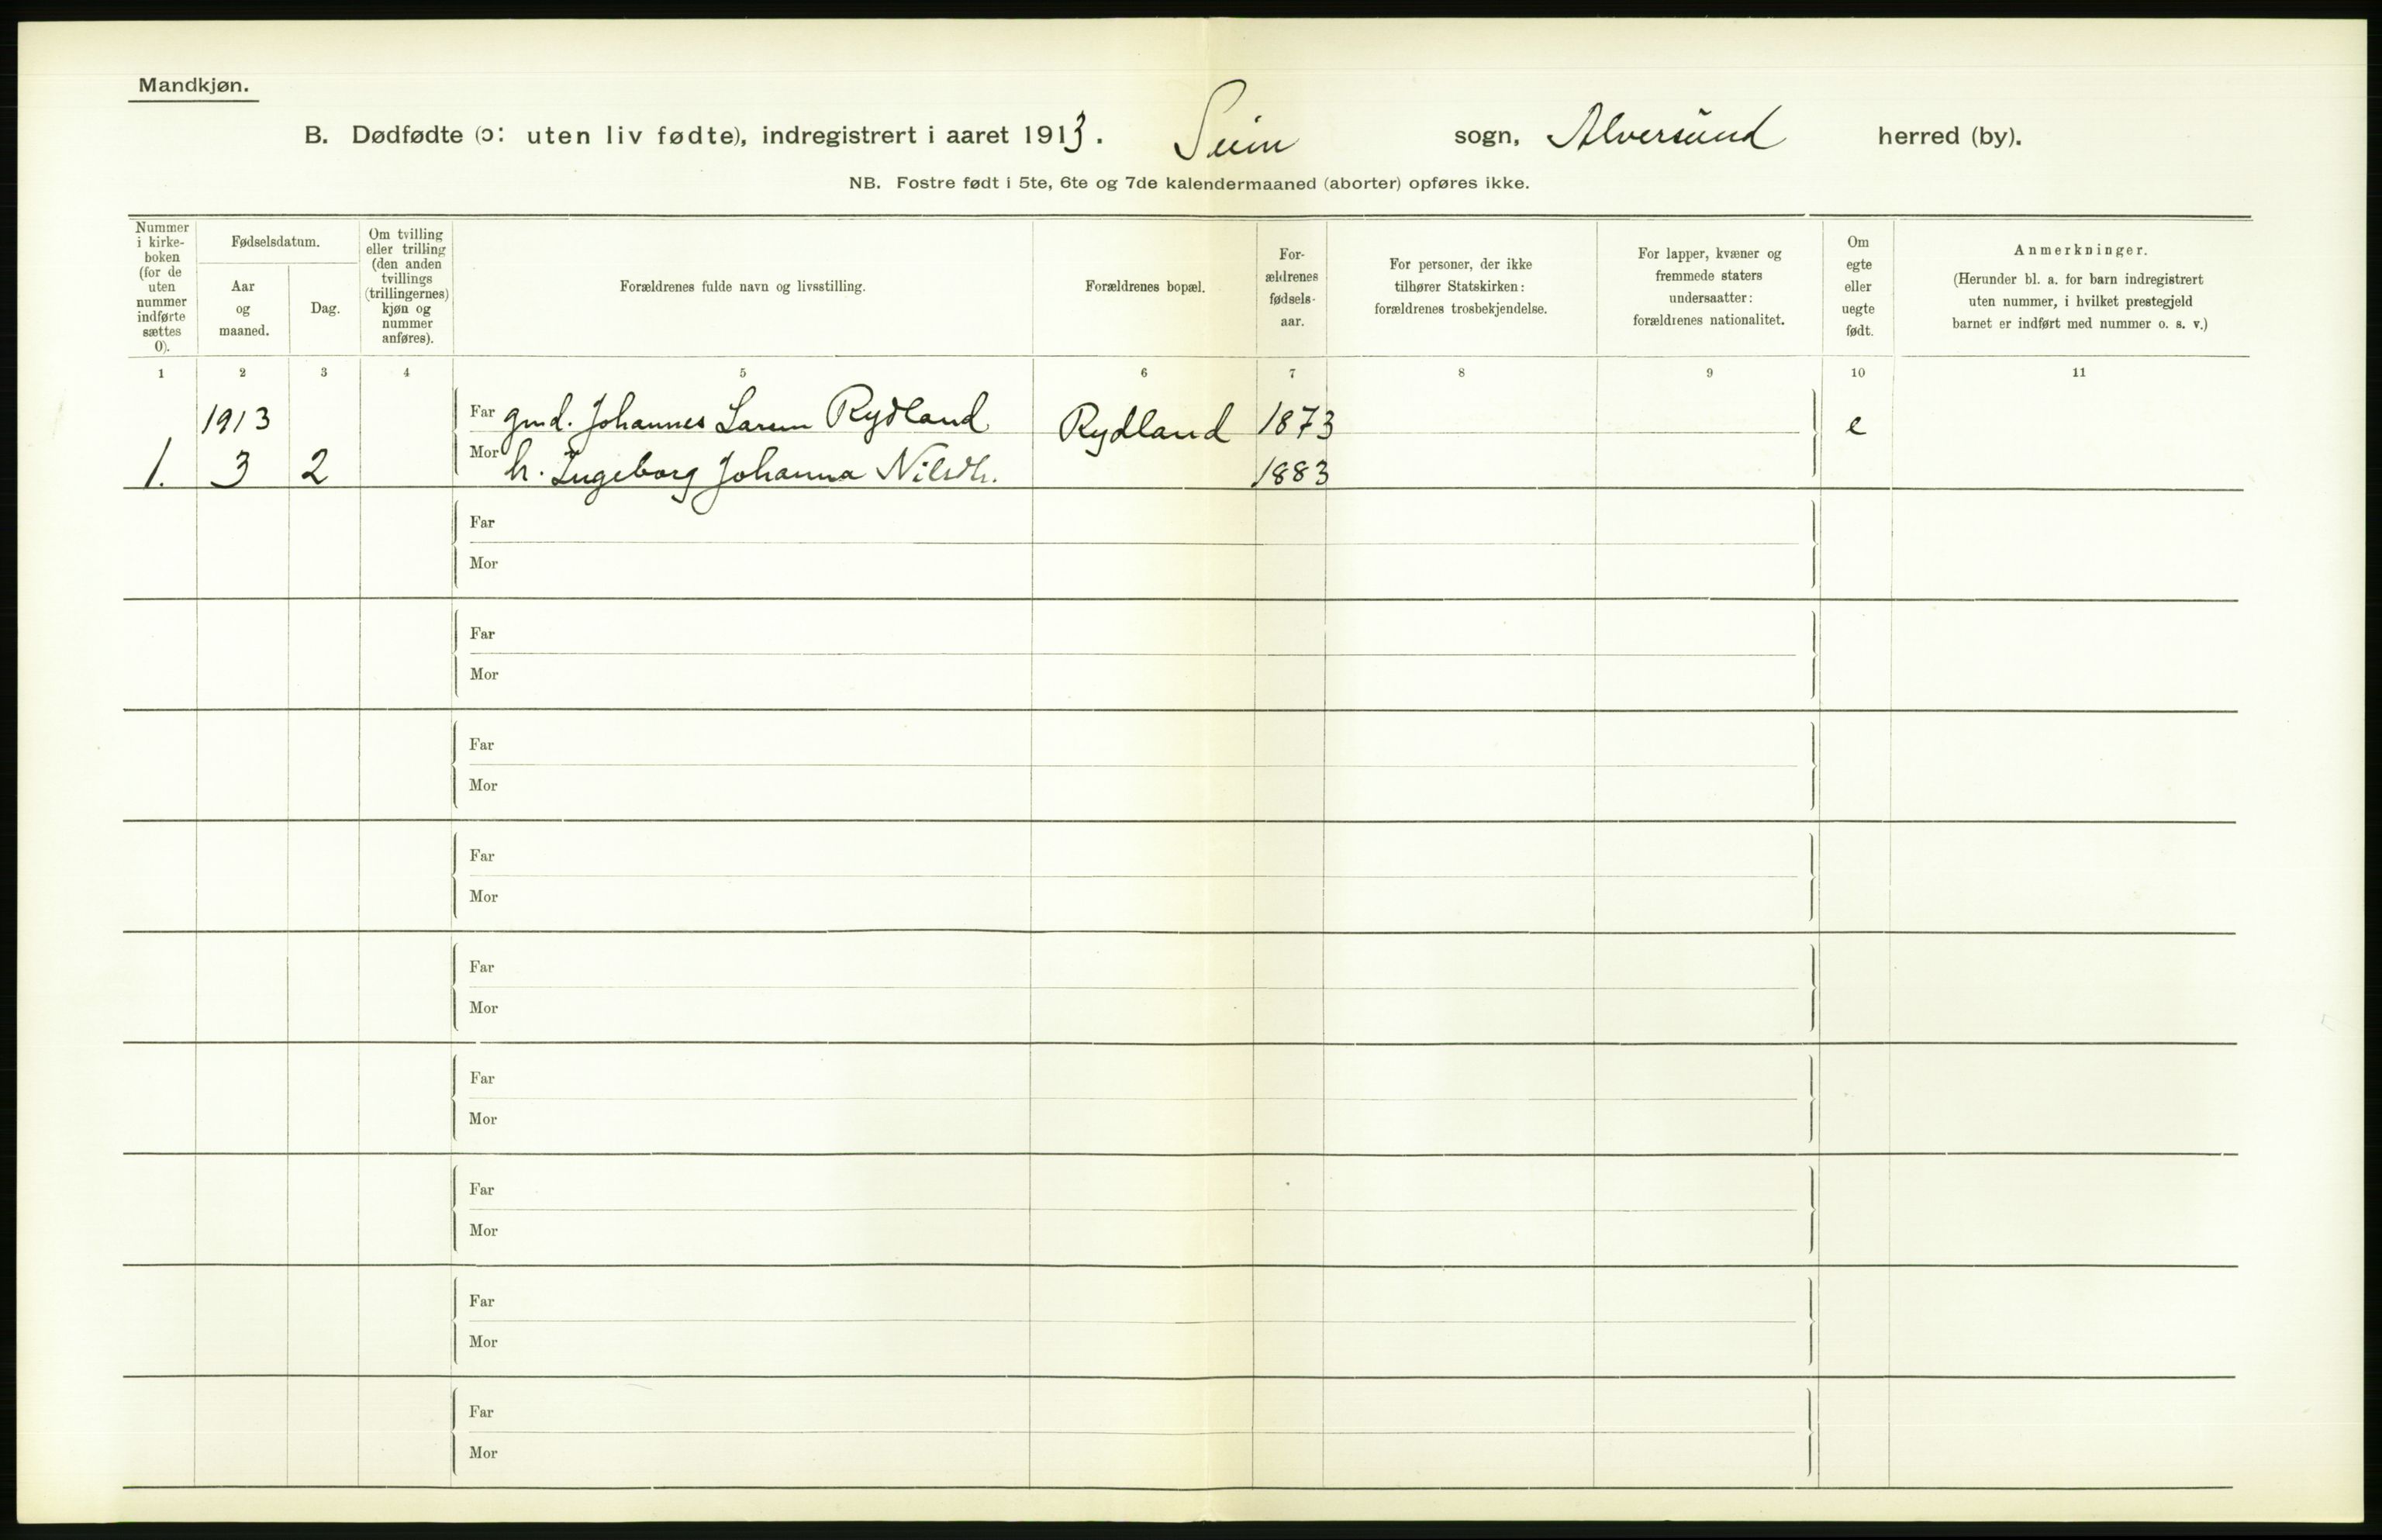 Mandkjøn.
B. Dødfødte (ɔ: uten liv fødte), indregistrert i aaret 1913. Seim sogn, Alversund herred (by).
NB. Fostre født i 5te, 6te og 7de kalendermaaned (aborter) opføres ikke.
Nummer
i kirke-
boken
(for de
uten
nummer
indførte
sættes
0).
Fødselsdatum.
Aar
og
maaned.
Dag.
Om tvilling
eller trilling
(den anden
tvillings
(trillingernes)
kjøn og
nummer
anføres).
Forældrenes fulde navn og livsstilling.
Forældrenes bopæl.
For-
ældrenes
fødsels-
aar.
For personer, der ikke
tilhører Statskirken:
forældrenes trosbekjendelse.
For lapper, kvæner og
fremmede staters
undersaatter:
forældrenes nationalitet.
Om
egte
eller
uegte
født.
Anmerkninger.
(Herunder bl. a. for barn indregistrert
uten nummer, i hvilket prestegjeld
barnet er indført med nummer o. s. v.)
1 2 3 4 5 6 7 8 9 10 11
1913 Far gmd. Johannes Larsen Rydland Rydland 1873 e
1. 3 2 Mor h. Ingeborg Johanna Nilsdtr. 1883
Far
Mor
Far
Mor
Far
Mor
Far
Mor
Far
Mor
Far
Mor
Far
Mor
Far
Mor
Far
Mor